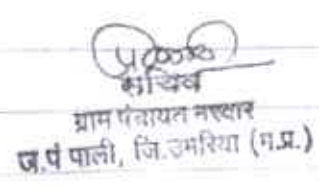 सचिव
ग्राम पंचायत नरवार
ज.पं पाली, जि.उमरिया (म.प्र.)